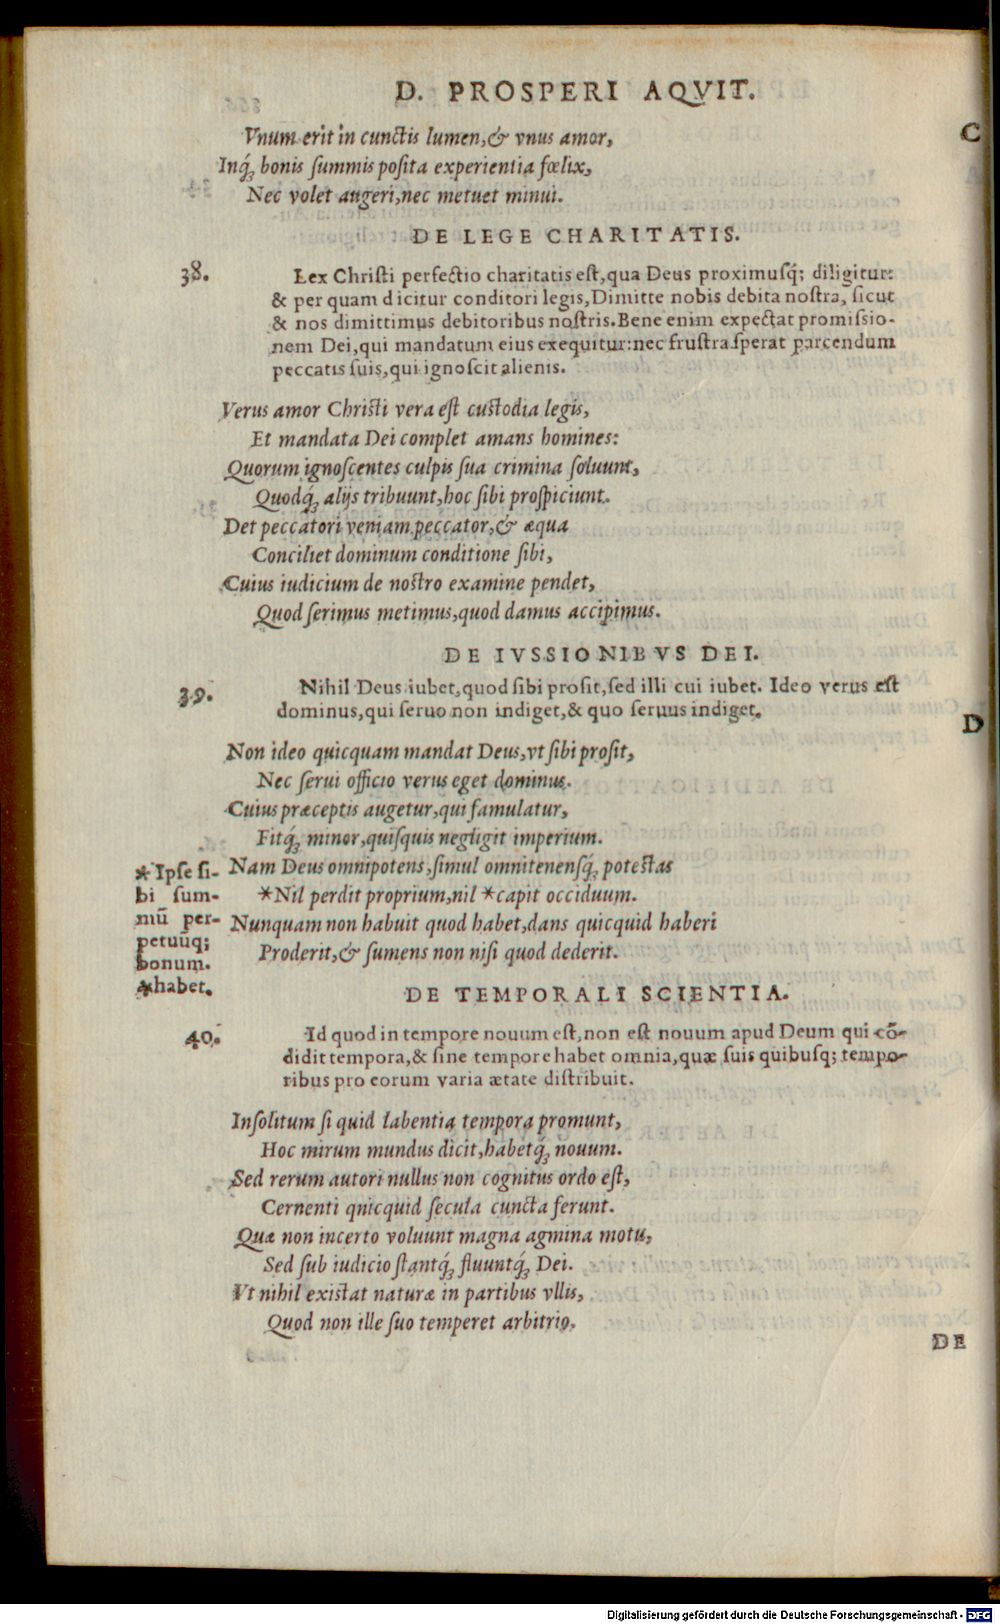 D. PROSPERI AQVIT.
Vnum erit in cunctis lumen,& vnus amor,
C
Inq́; bonis summis posita experientia fœlix,
Nec volet augeri,nec metuet minui.
DE LEGE CHARITATIS.
38. Lex Christi perfectio charitatis est,qua Deus proximusq́; diligitur:
& per quam dicitur conditori legis,Dimitte nobis debita nostra, sicut
& nos dimittimus debitoribus nostris.Bene enim expectat promissio-
nem Dei,qui mandatum eius exequitur:nec frustra sperat parcendum
peccatis suis,qui ignoscit alienis.
Verus amor Christi vera est custodia legis,
Et mandata Dei complet amans homines:
Quorum ignoscentes culpis sua crimina soluunt,
Quodq́; alijs tribuunt,hoc sibi prospiciunt.
Det peccatori veniam peccator,& æqua
Conciliet dominum conditione sibi,
Cuius iudicium de nostro examine pendet,
Quod serimus metimus,quod damus accipimus.
DE IVSSIONIBVS DEI.
39. Nihil Deus iubet,quod sibi prosit,sed illi cui iubet. Ideo verus est
dominus,qui seruo non indiget,& quo seruus indiget.
D
Non ideo quicquam mandat Deus,vt sibi prosit,
Nec serui officio verus eget dominus.
Cuius præceptis augetur,qui famulatur,
Fitq́; minor,quisquis negligit imperium.
Nam Deus omnipotens,simul omnitenensq́; potestas
*Nil perdit proprium,nil *capit occiduum.
Nunquam non habuit quod habet,dans quicquid haberi
Proderit,& sumens non nisi quod dederit.
*Ipse si-
bi sum-
mū per-
petuūq;
bonum.
*habet.
DE TEMPORALI SCIENTIA.
40. Id quod in tempore nouum est,non est nouum apud Deum qui cō-
didit tempora,& sine tempore habet omnia,quæ suis quibusq; tempo-
ribus pro eorum varia ætate distribuit.
Insolitum si quid labentia tempora promunt,
Hoc mirum mundus dicit,habetq́; nouum.
Sed rerum autori nullus non cognitus ordo est,
Cernenti qnicquid secula cuncta ferunt.
Quæ non incerto voluunt magna agmina motu,
Sed sub iudicio stantq́; fluuntq́; Dei.
Vt nihil existat naturæ in partibus vllis,
Quod non ille suo temperet arbitrio.
DE
Digitalisierung gefördert durch die Deutsche Forschungsgemeinschaft - DFG